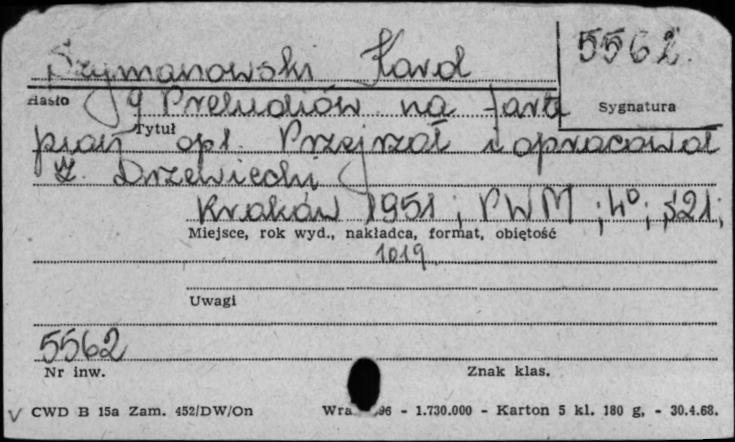 5562.
Szymanowski Karol
Hasło
Sygnatura
9 Preludiów na forte
Tytuł
pian op1. Przejrzał i opracował
Z. Drzewiecki
Kraków 1951; PWM; 4°; s21;
Miejsce, rok wyd., nakładca, format, obiętość
1019
Uwagi
5562
Nr inw.
Znak klas.
V CWD B 15a Zam. 452/DW/On
96 - 1.730.000 - Karton 5 kl. 180 g. - 30.4.68.